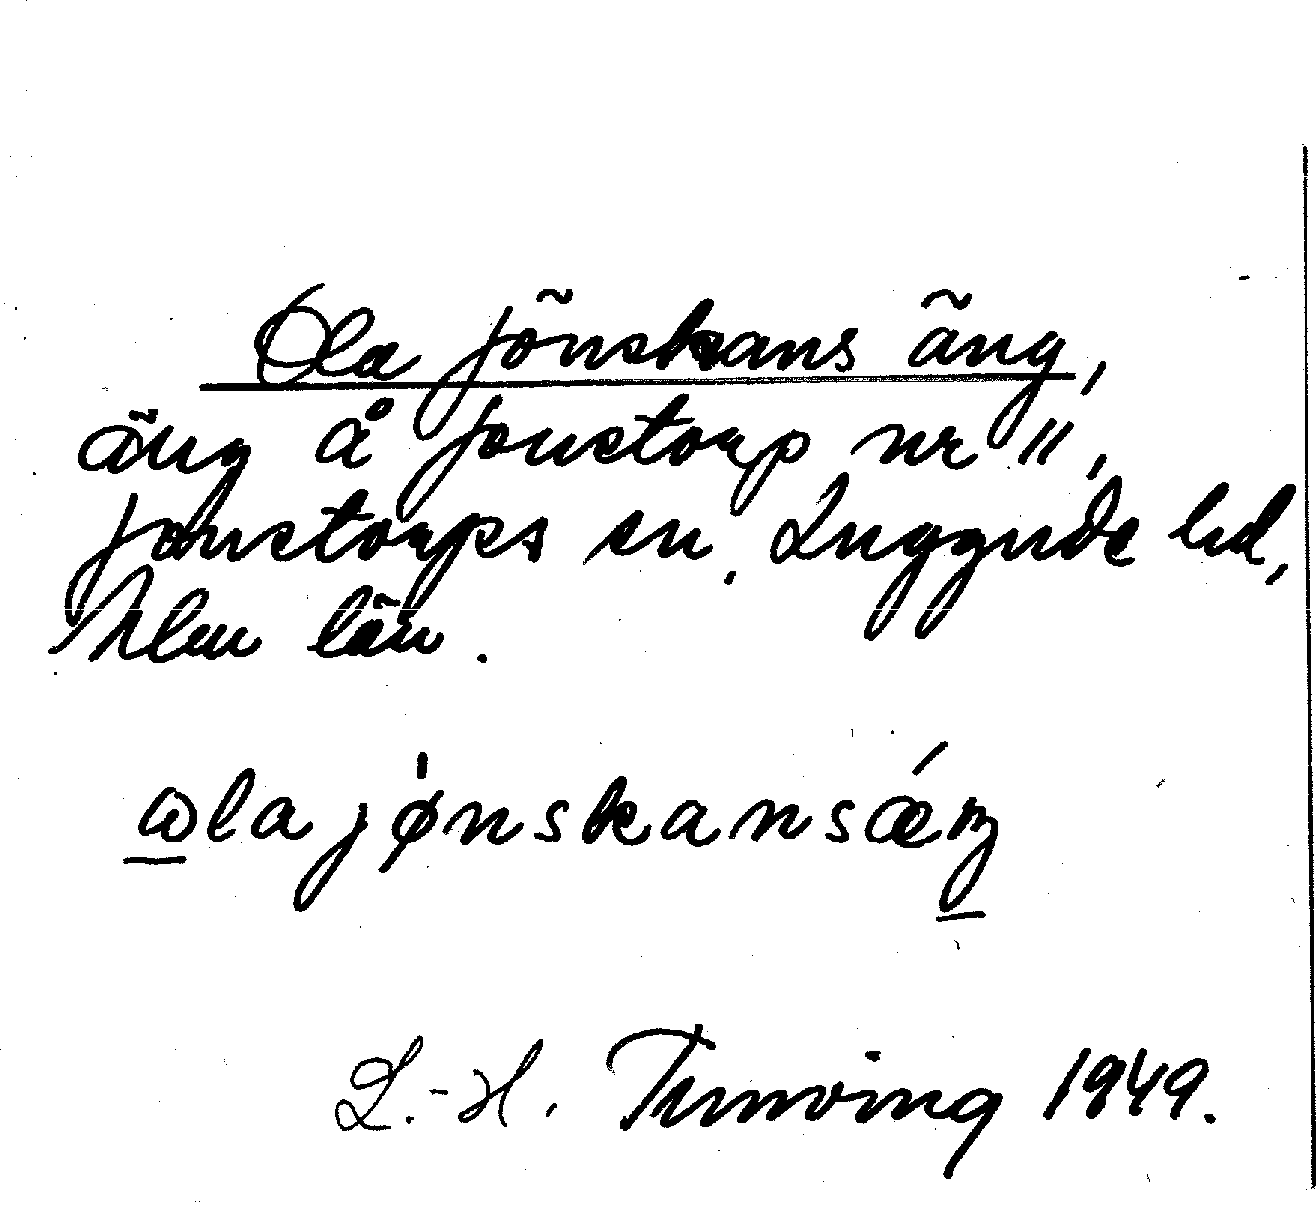 Ola Jönskans äng,
äng å Jonstorp nr 11,
Jonstorps sn, Luggude hd,
Mlm län.
ωla jǿnskansǽŋ
L.-H. Tunving 1949.